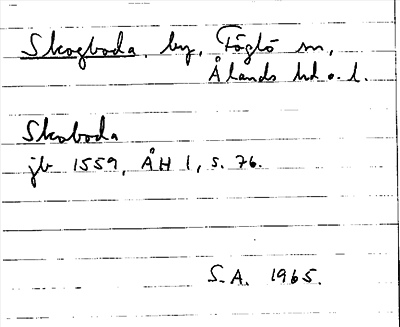 Skogboda, by, Föglö sn,
Ålands hd o. l.
Skoboda
jb 1559, ÅH 1, s. 76.
S.A. 1965.